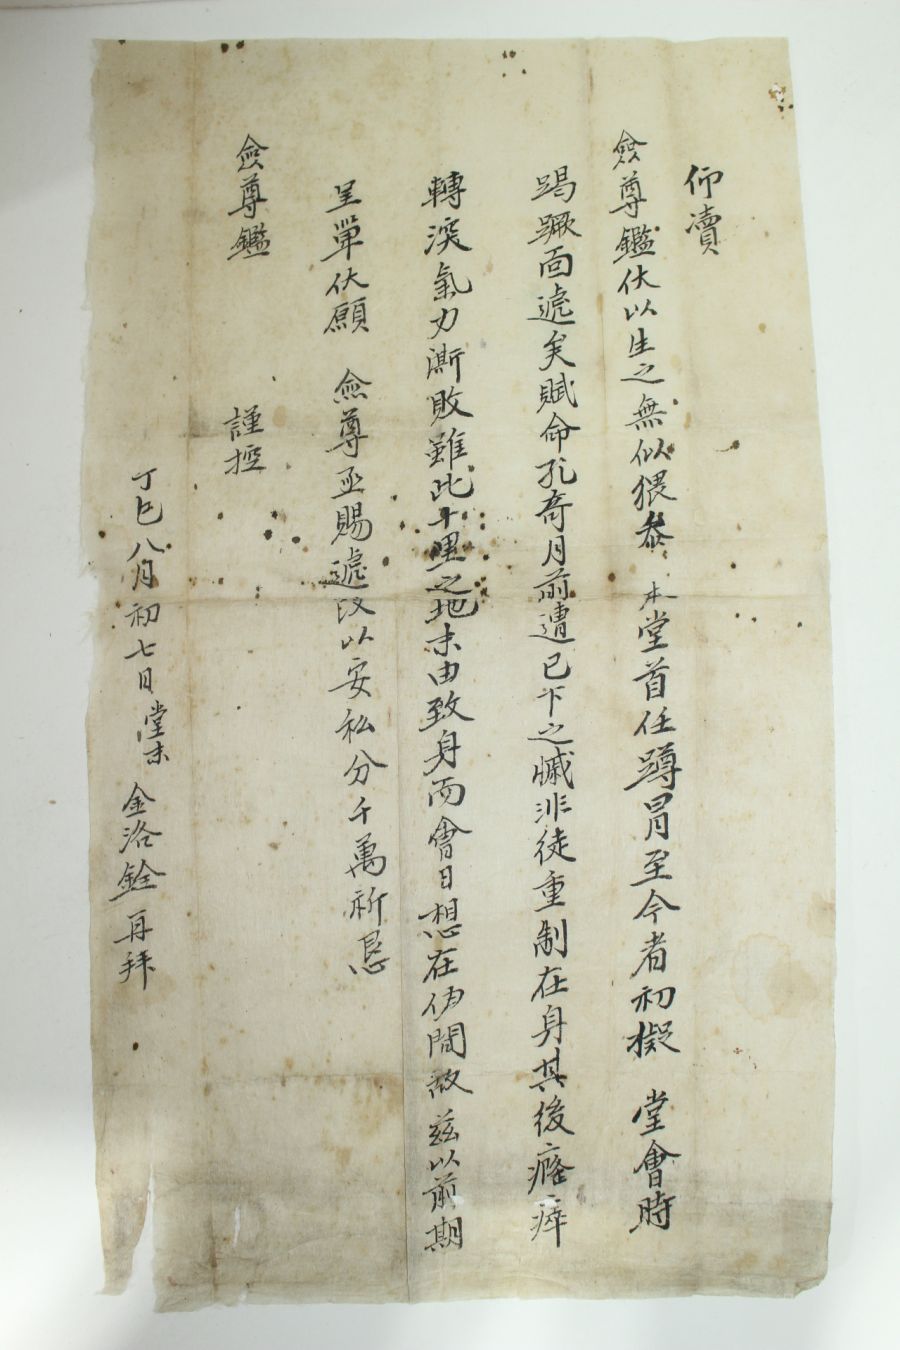 仰瀆
僉尊鑑伏以生之無似猥叅 本堂首任蹲冒至今者初擬 堂會時
躅蹶面遞矣賦命孔奇月前遭已下之慽非徒重制在身其後癃瘁
轉深氣力澌敗雖此十里之地末由致身而會日想在伊間故玆以前期
呈單伏願 僉尊亟賜遞改以安私分千萬祈恳
僉尊鑑 謹控
丁巳八月初七日堂末 金洛銓 再拜